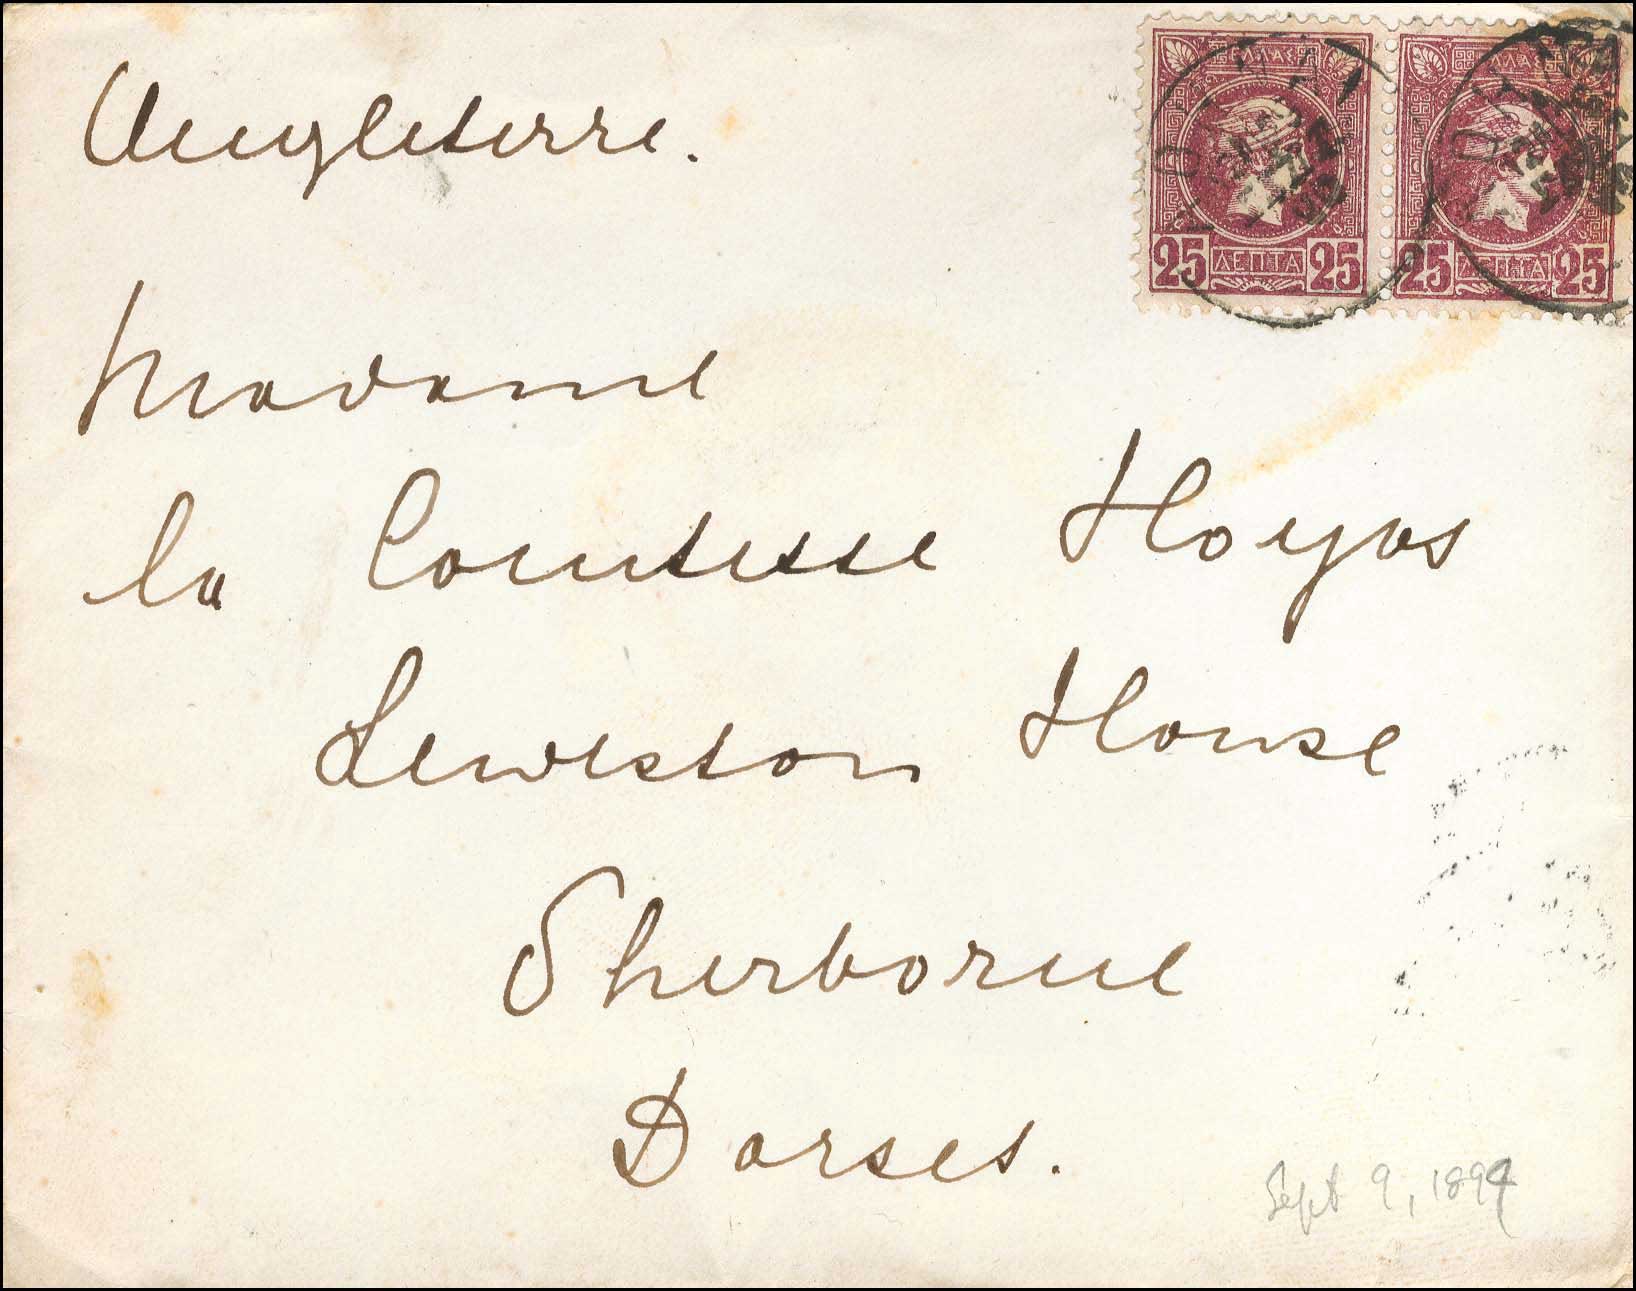 Angleterre.
ΕΛΛΑΣ ΕΛΛΑΣ
25 ΛΕΠΤΑ 25 25 ΛΕΠΤΑ 25
Madame
la Comtesse Hoyos
Leweston House
Sherborne
Dorset.
Sept 9, 1894